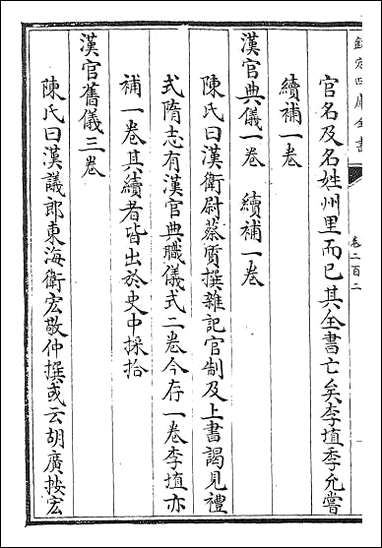 欽定四庫全書
卷二百二
官名及名姓州里而已其全書亡矣李埴季允嘗
續補一卷
漢官典儀一卷　續補一卷
陳氏曰漢衛尉蔡質撰雜記官制及上書謁見禮
式隋志有漢官典職儀式二卷今存一卷李埴亦
補一卷其續者皆出於史中採拾
漢官舊儀三卷
陳氏曰漢議郎東海衛宏敬仲撰或云胡廣按宏